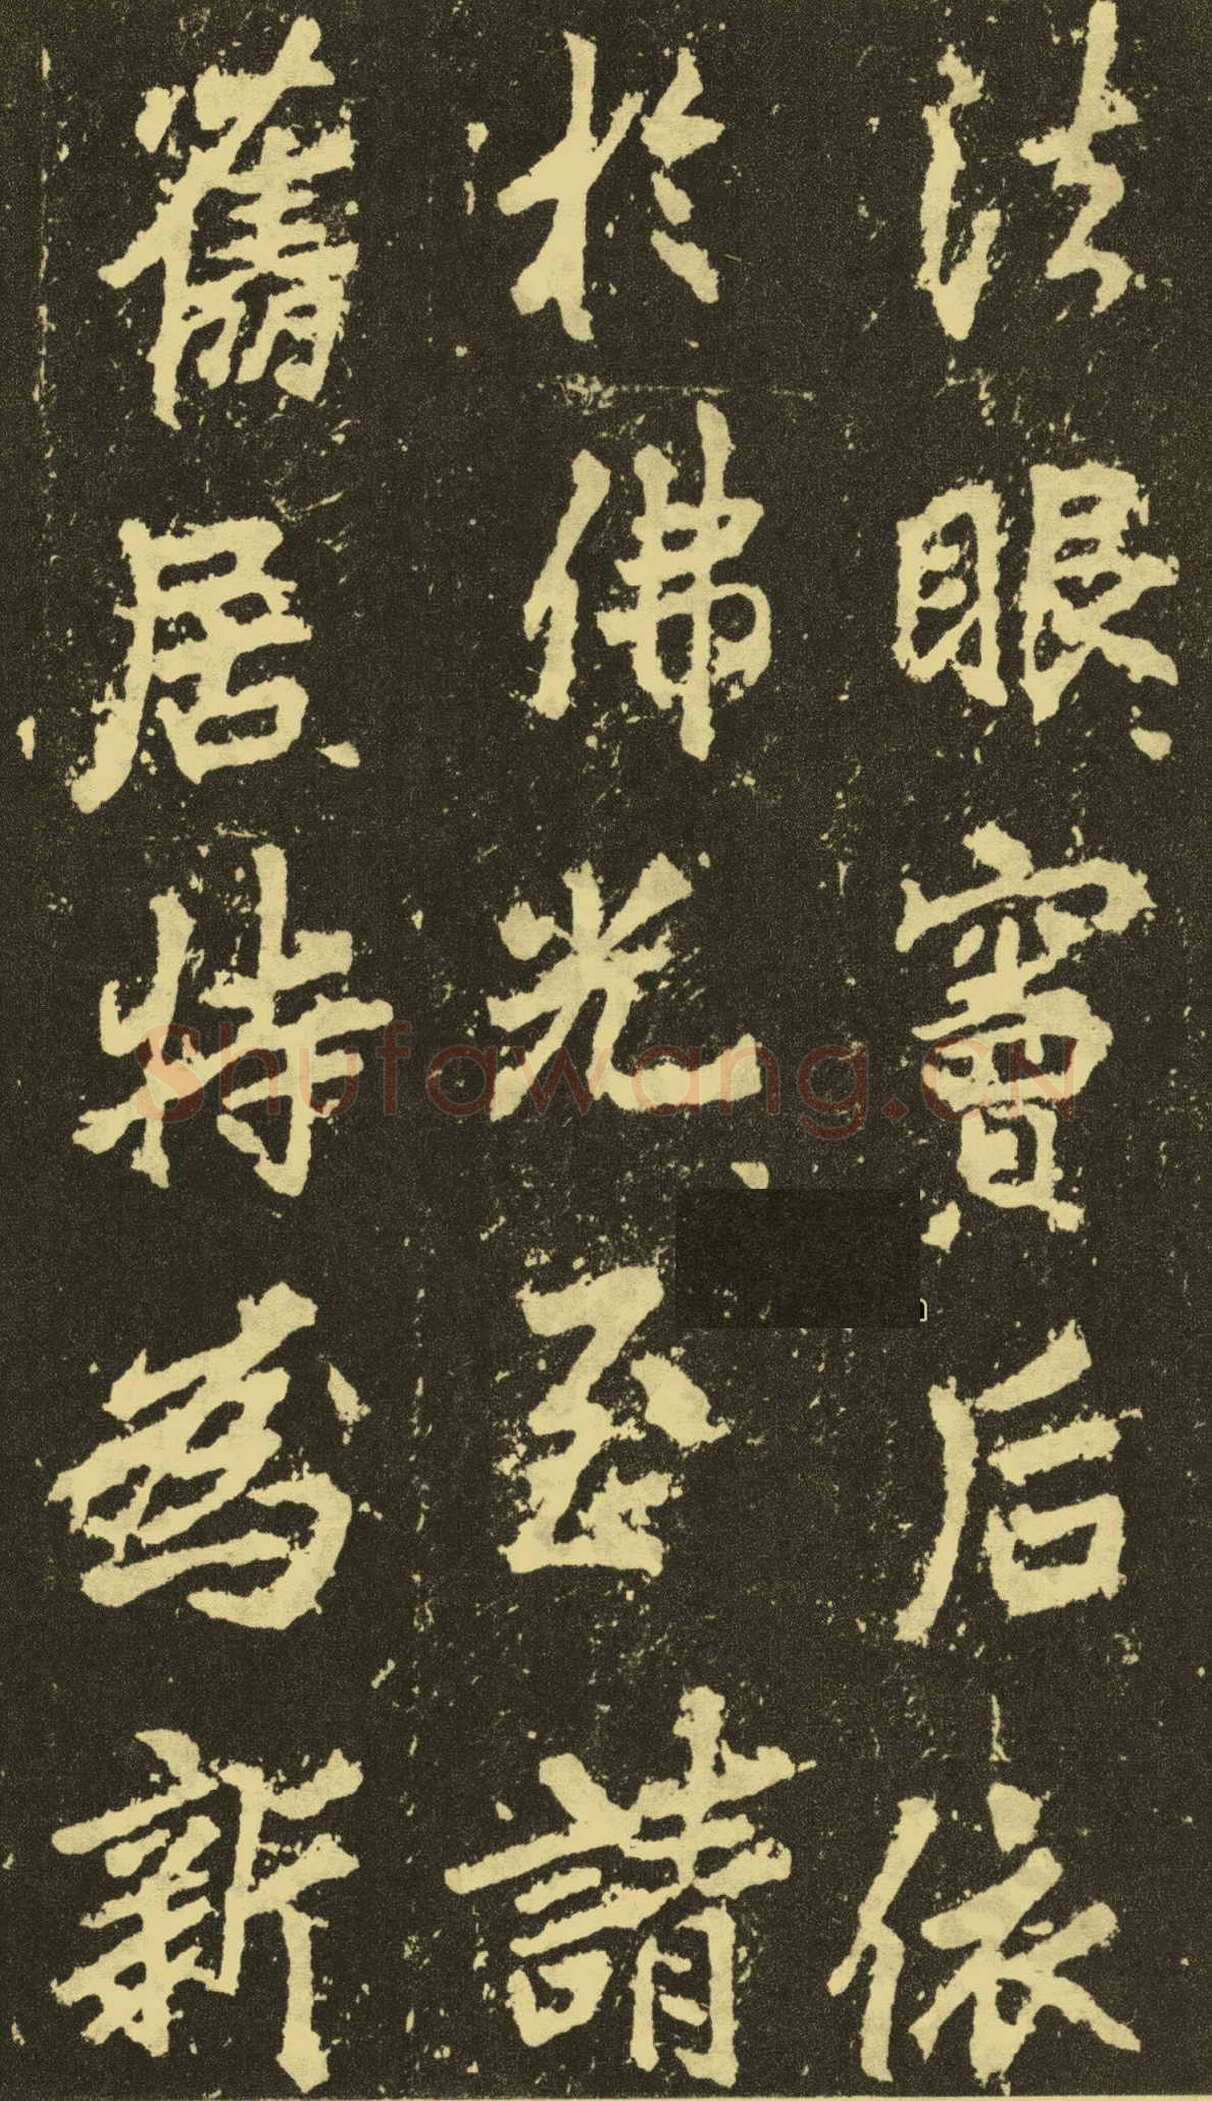 法眼竇后依
於佛光至請
舊居特為新
Shufawang.CN